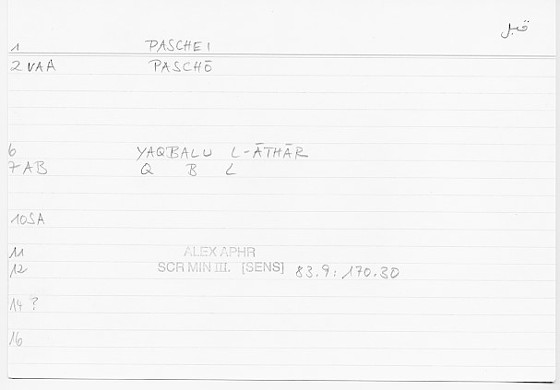 قبل
1 PASCHEI
2 VAA PASCHŌ
6 YAQBALU L-ĀTHĀR
7 AB Q B L
10 SA
11 ALEX APHR
12 SCR MIN III. [SENS] 83.9: 170.30
14 ?
16